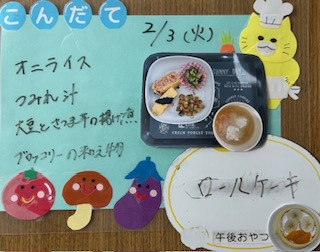 こんだて
2/3(火)
オニライス
つみれ汁
大豆とさつま芋の揚げ煮
ブロッコリーの和え物
ロールケーキ
午後おやつ